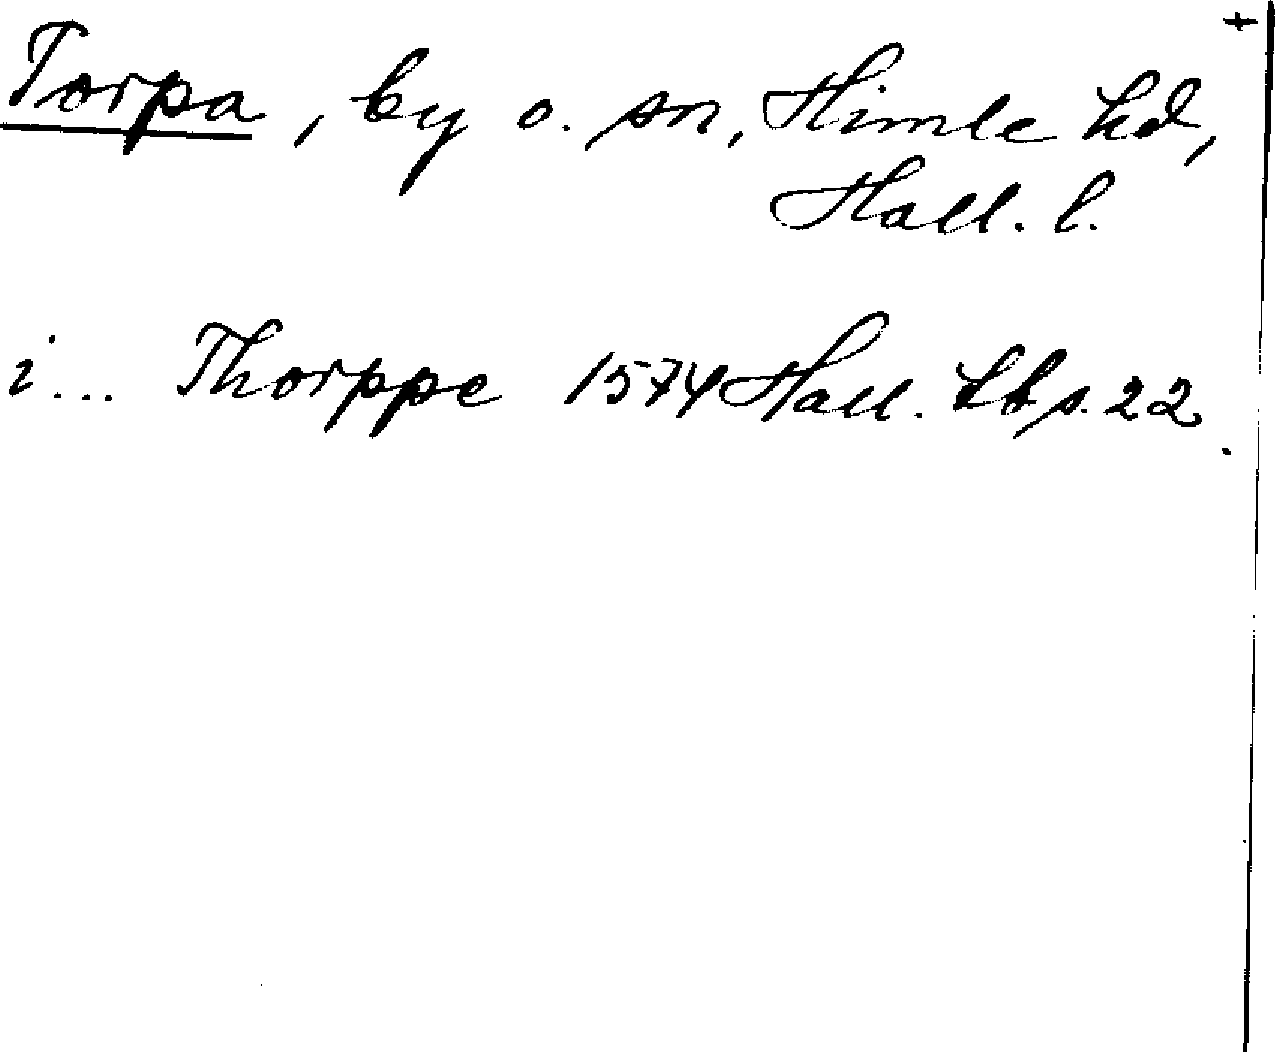 Torpa, by o. sn, Himle hd,
Hall. l.
i... Thorppe 1574 Hall. tb s. 22